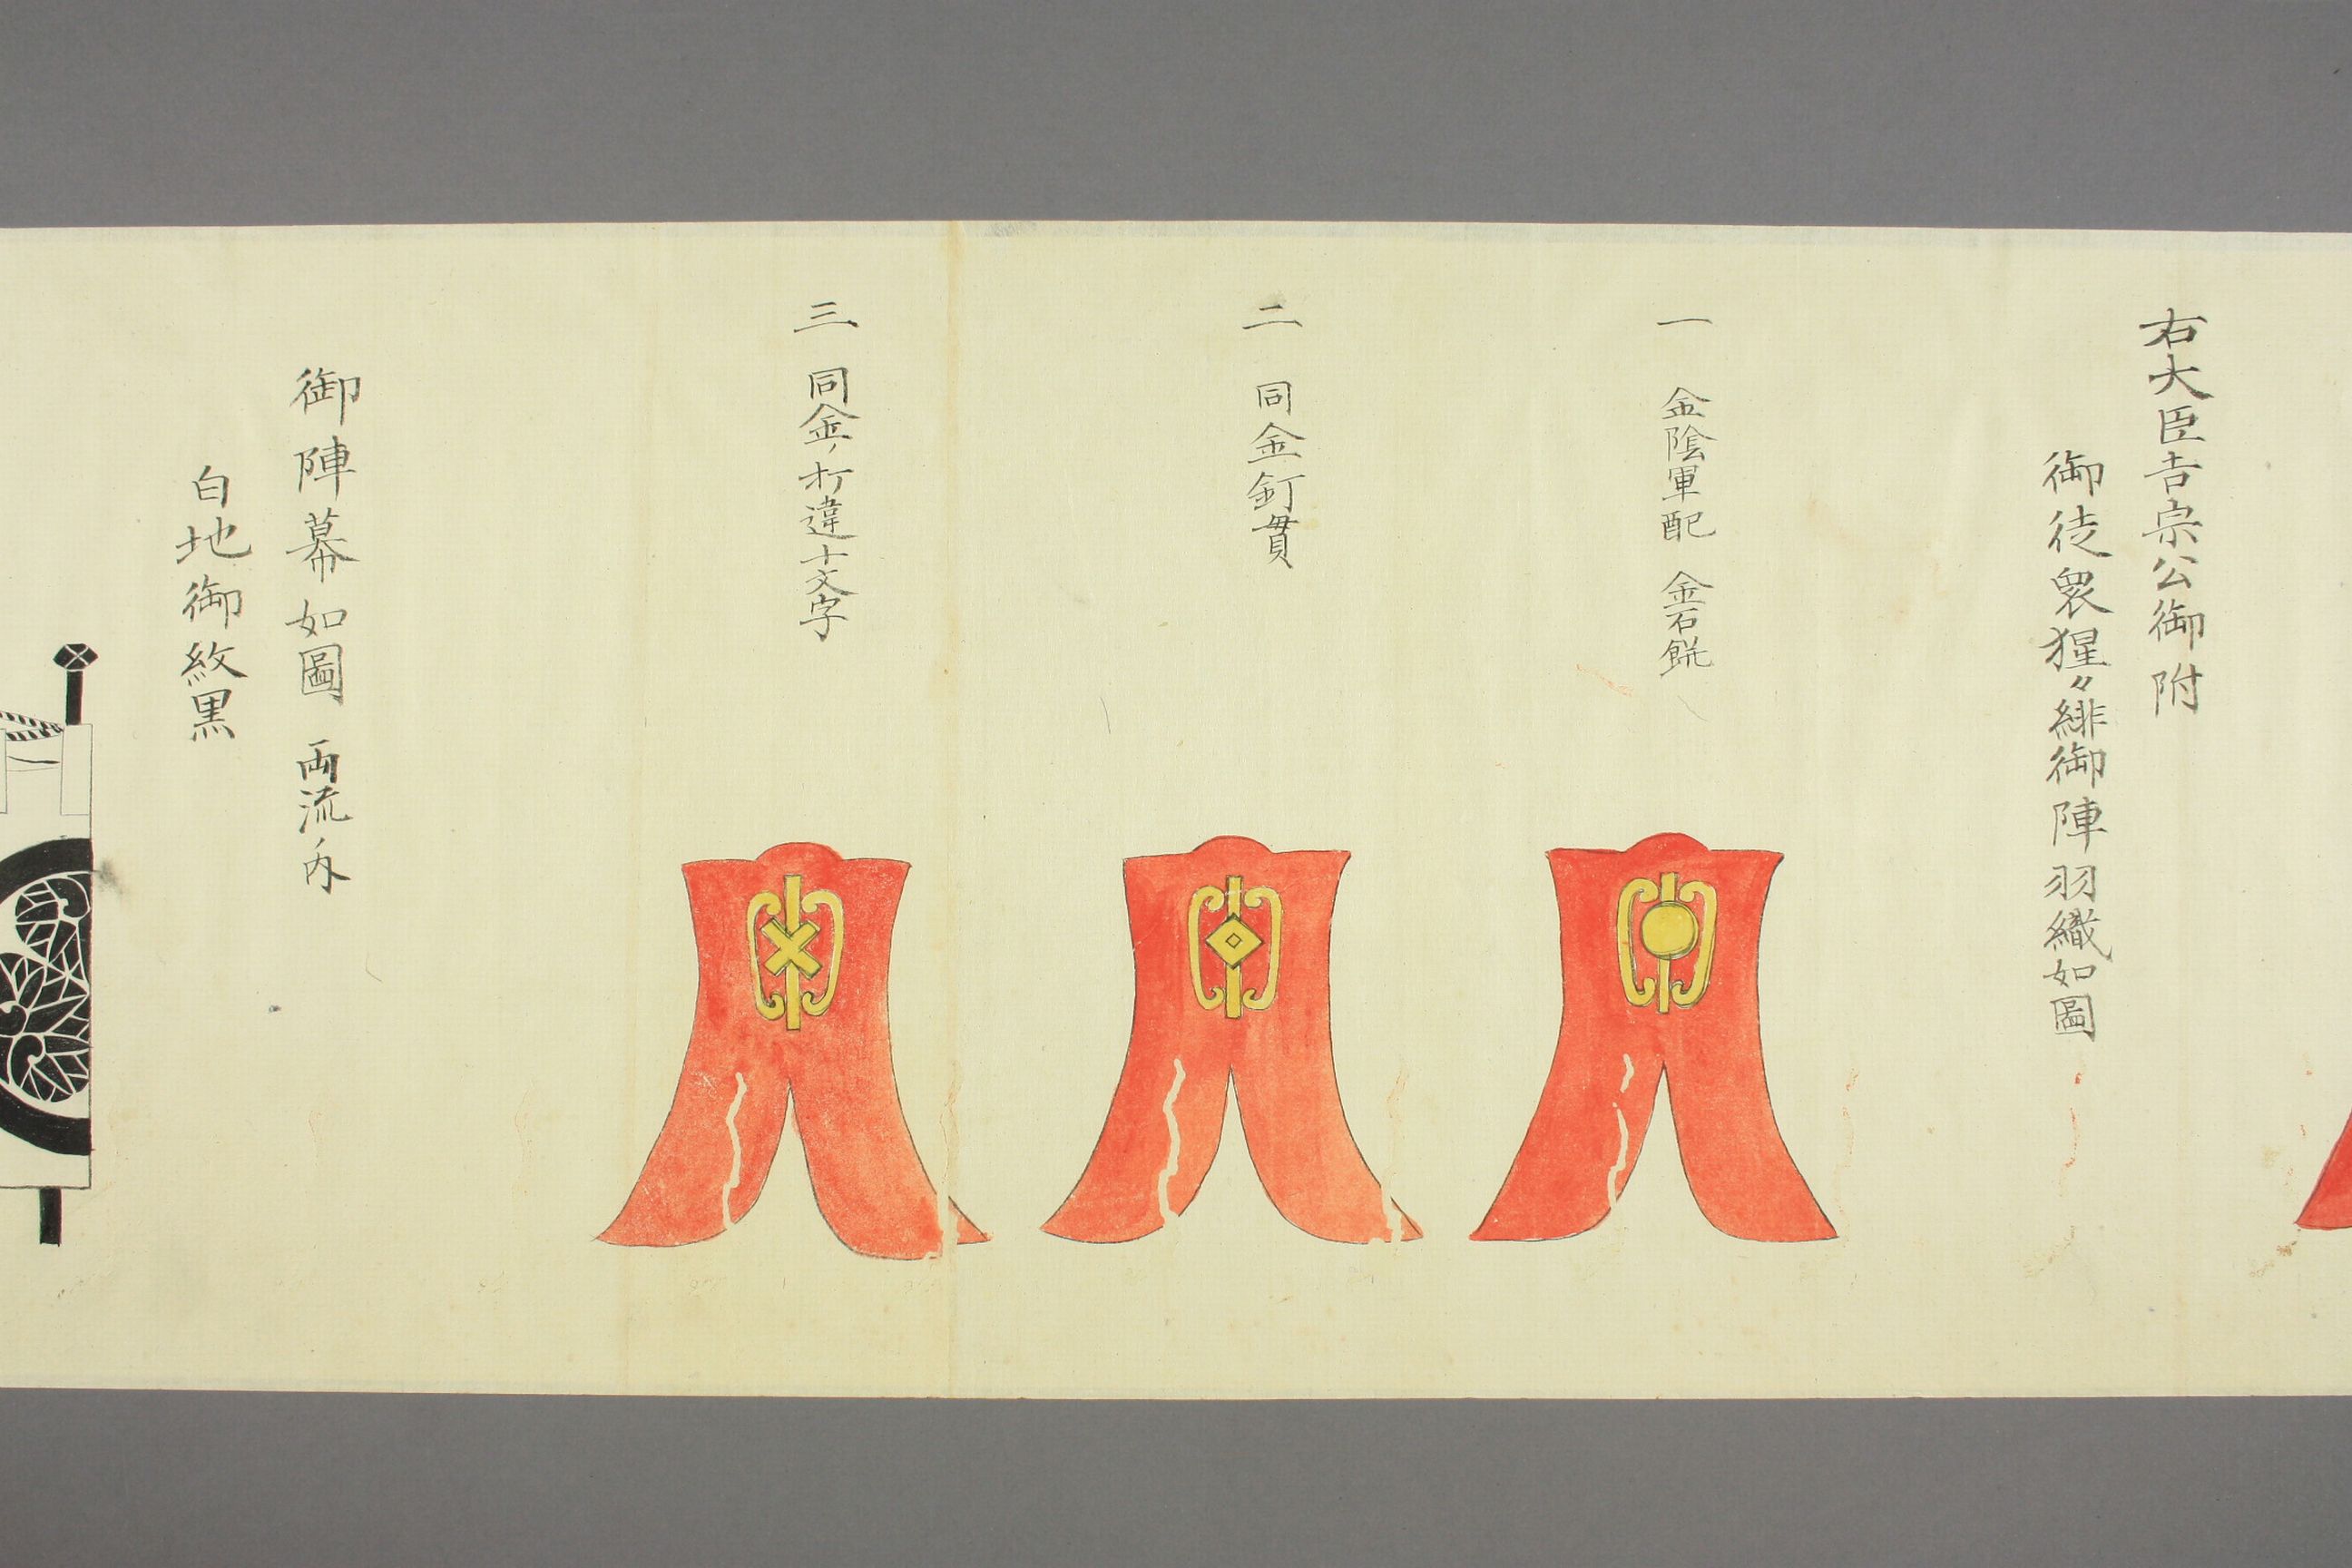 右大臣吉宗公御附
御徒衆猩〻緋御陣羽織如圖
一 金陰軍配 金石餅
二 同金釘貫
三 同金ノ打違十文字
御陣幕如圖 両流ノ内
白地御紋黒